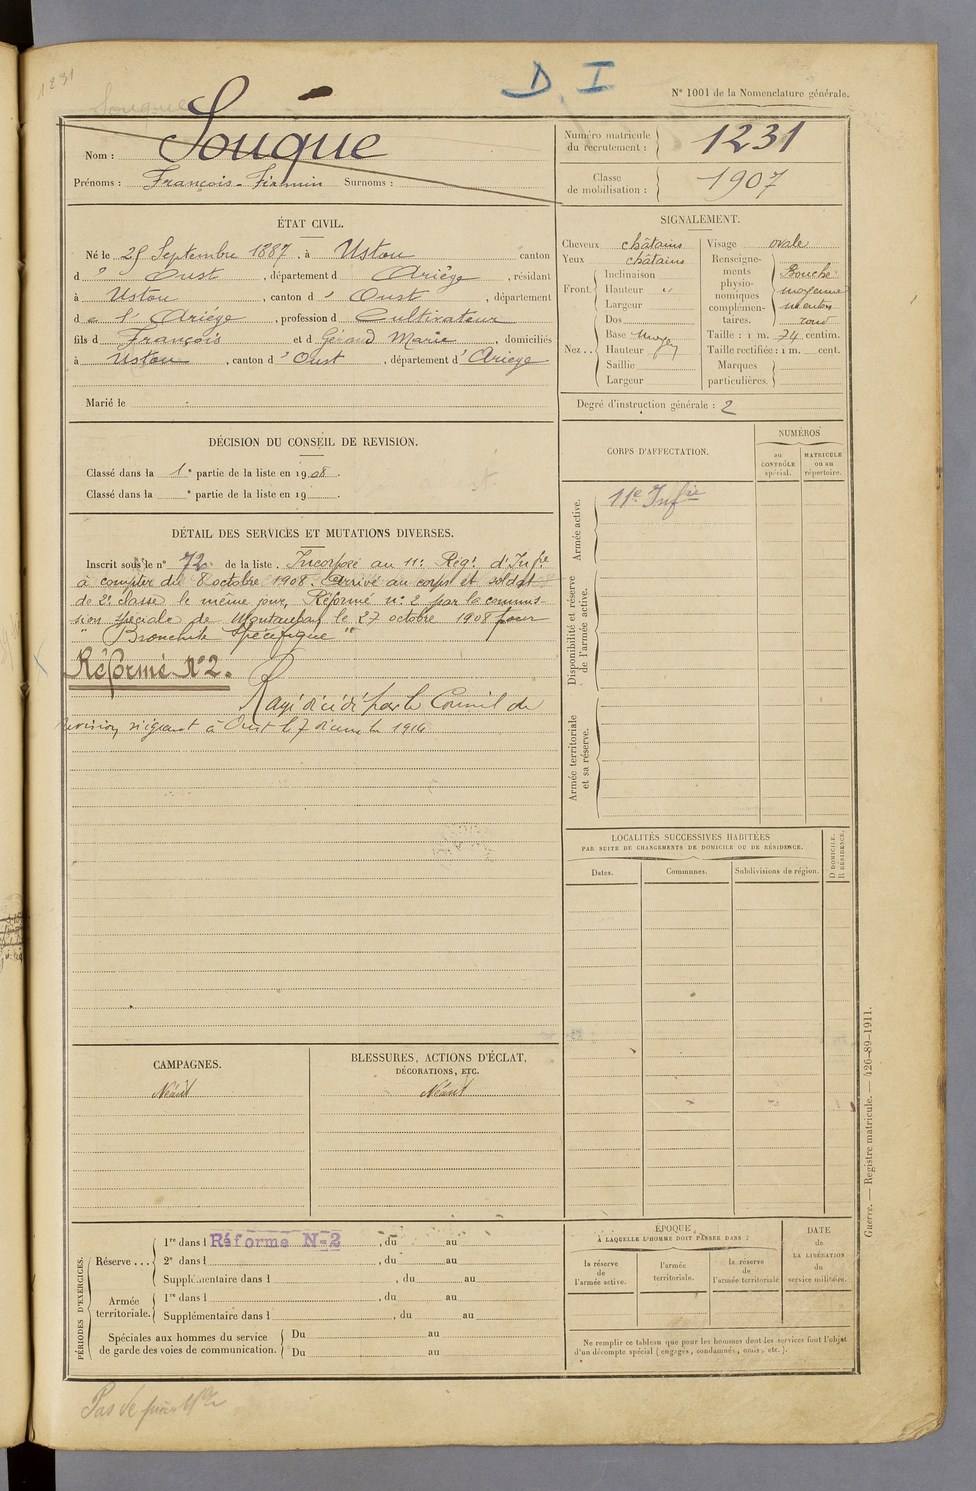 1231
D I
N° 1001 de la Nomenclature générale.
Souque
Nom : Souque
Prénoms : François-Firmin Surnoms :
Numéro matricule du recrutement : 1231
Classe de mobilisation : 1907
ÉTAT CIVIL.
Né le 25 Septembre 1887, à Ustou canton
d " Oust, département d Ariège, résidant
à Ustou, canton d ' Oust, département
d e l' Ariège, profession de Cultivateur
fils d François et d Géraud Marie, domiciliés
à Ustou, canton d' Oust, département d' Ariège
Marié le
SIGNALEMENT.
Cheveux châtains
Yeux châtains
Front. Inclinaison
Hauteur "
Largeur
Nez . . Dos
Base moyen
Hauteur
Saillie
Largeur
Visage ovale
Renseignements physionomiques complémentaires. Bouche moyenne menton rond
Taille : 1 m. 74 centim.
Taille rectifiée : 1 m. cent.
Marques particulières.
Degré d'instruction générale : 2
DÉCISION DU CONSEIL DE REVISION.
Classé dans la 1e partie de la liste en 1908.
Classé dans la e partie de la liste en 19 .
DÉTAIL DES SERVICES ET MUTATIONS DIVERSES.
Inscrit sous le n° 72 de la liste. Incorporé au 11e Régt d'Infie
à compter du 8 octobre 1908. Arrivé au corps et soldat
de 2e classe le même jour, Réformé n° 2 par la commis-
sion spéciale de Montauban le 27 octobre 1908 pour
" Bronchite Spécifique "
Réformé N°2.
par le Conseil de
revision siégeant à Oust le 7 1914
CORPS D'AFFECTATION.
NUMÉROS
au CONTRÔLE spécial.
MATRICULE ou au répertoire.
Armée active.
11e Infie
Disponibilité et réserve de l'armée active.
Armée territoriale et sa réserve.
LOCALITÉS SUCCESSIVES HABITÉES
PAR SUITE DE CHANGEMENTS DE DOMICILE OU DE RÉSIDENCE.
D DOMICILE. R RÉSIDENCE.
Dates.
Communes.
Subdivisions de région.
CAMPAGNES.
Néant
BLESSURES, ACTIONS D'ÉCLAT,
DÉCORATIONS, ETC.
Néant
PÉRIODES D'EXERCICES.
Réserve . . . 1re dans l Réformé N°2, du au
2e dans l , du au
Supplémentaire dans l , du au
Armée territoriale. 1re dans l , du au
Supplémentaire dans l , du au
Spéciales aux hommes du service de garde des voies de communication. Du au
Du au
ÉPOQUE
À LAQUELLE L'HOMME DOIT PASSER DANS :
la réserve de l'armée active.
l'armée territoriale.
la réserve de l'armée territoriale
DATE de LA LIBÉRATION du service militaire.
Ne remplir ce tableau que pour les hommes dont les services font l'objet
d'un décompte spécial (engagés, condamnés, omis, etc.).
Guerre. — Registre matricule. — 426-89-1911.
Pas de